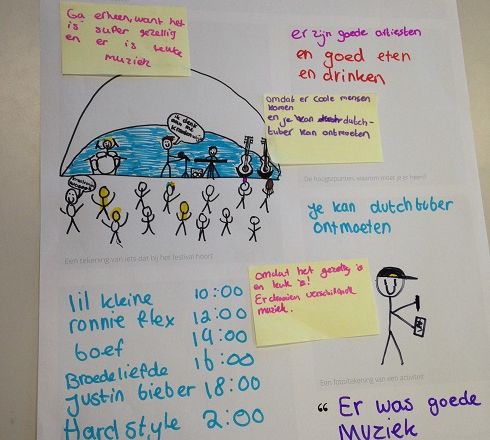 Ga erheen, want het
is super gezellig
en er is leuke
muziek
er zijn goede artiesten
en goed eten
en drinken
omdat er coole mensen
komen
en je kan dutch-
tuber kan ontmoeten
ik denk
aan me
De hoogtepunten, waarom moet je er heen?
je kan dutchtuber
ontmoeten
Een tekening van iets dat bij het festival hoort
omdat het gezellig is
en leuk is!
Er draaien verschillende
muziek.
lil kleine 10:00
ronnie flex 12:00
boef 14:00
Broederliefde 16:00
Justin bieber 18:00
Hardstyle 2:00
Een foto/tekening van een activiteit
“ Er was goede
muziek